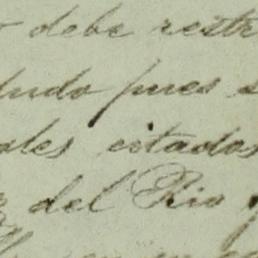 debe restr
dudo pues s
ales citados
del Rio